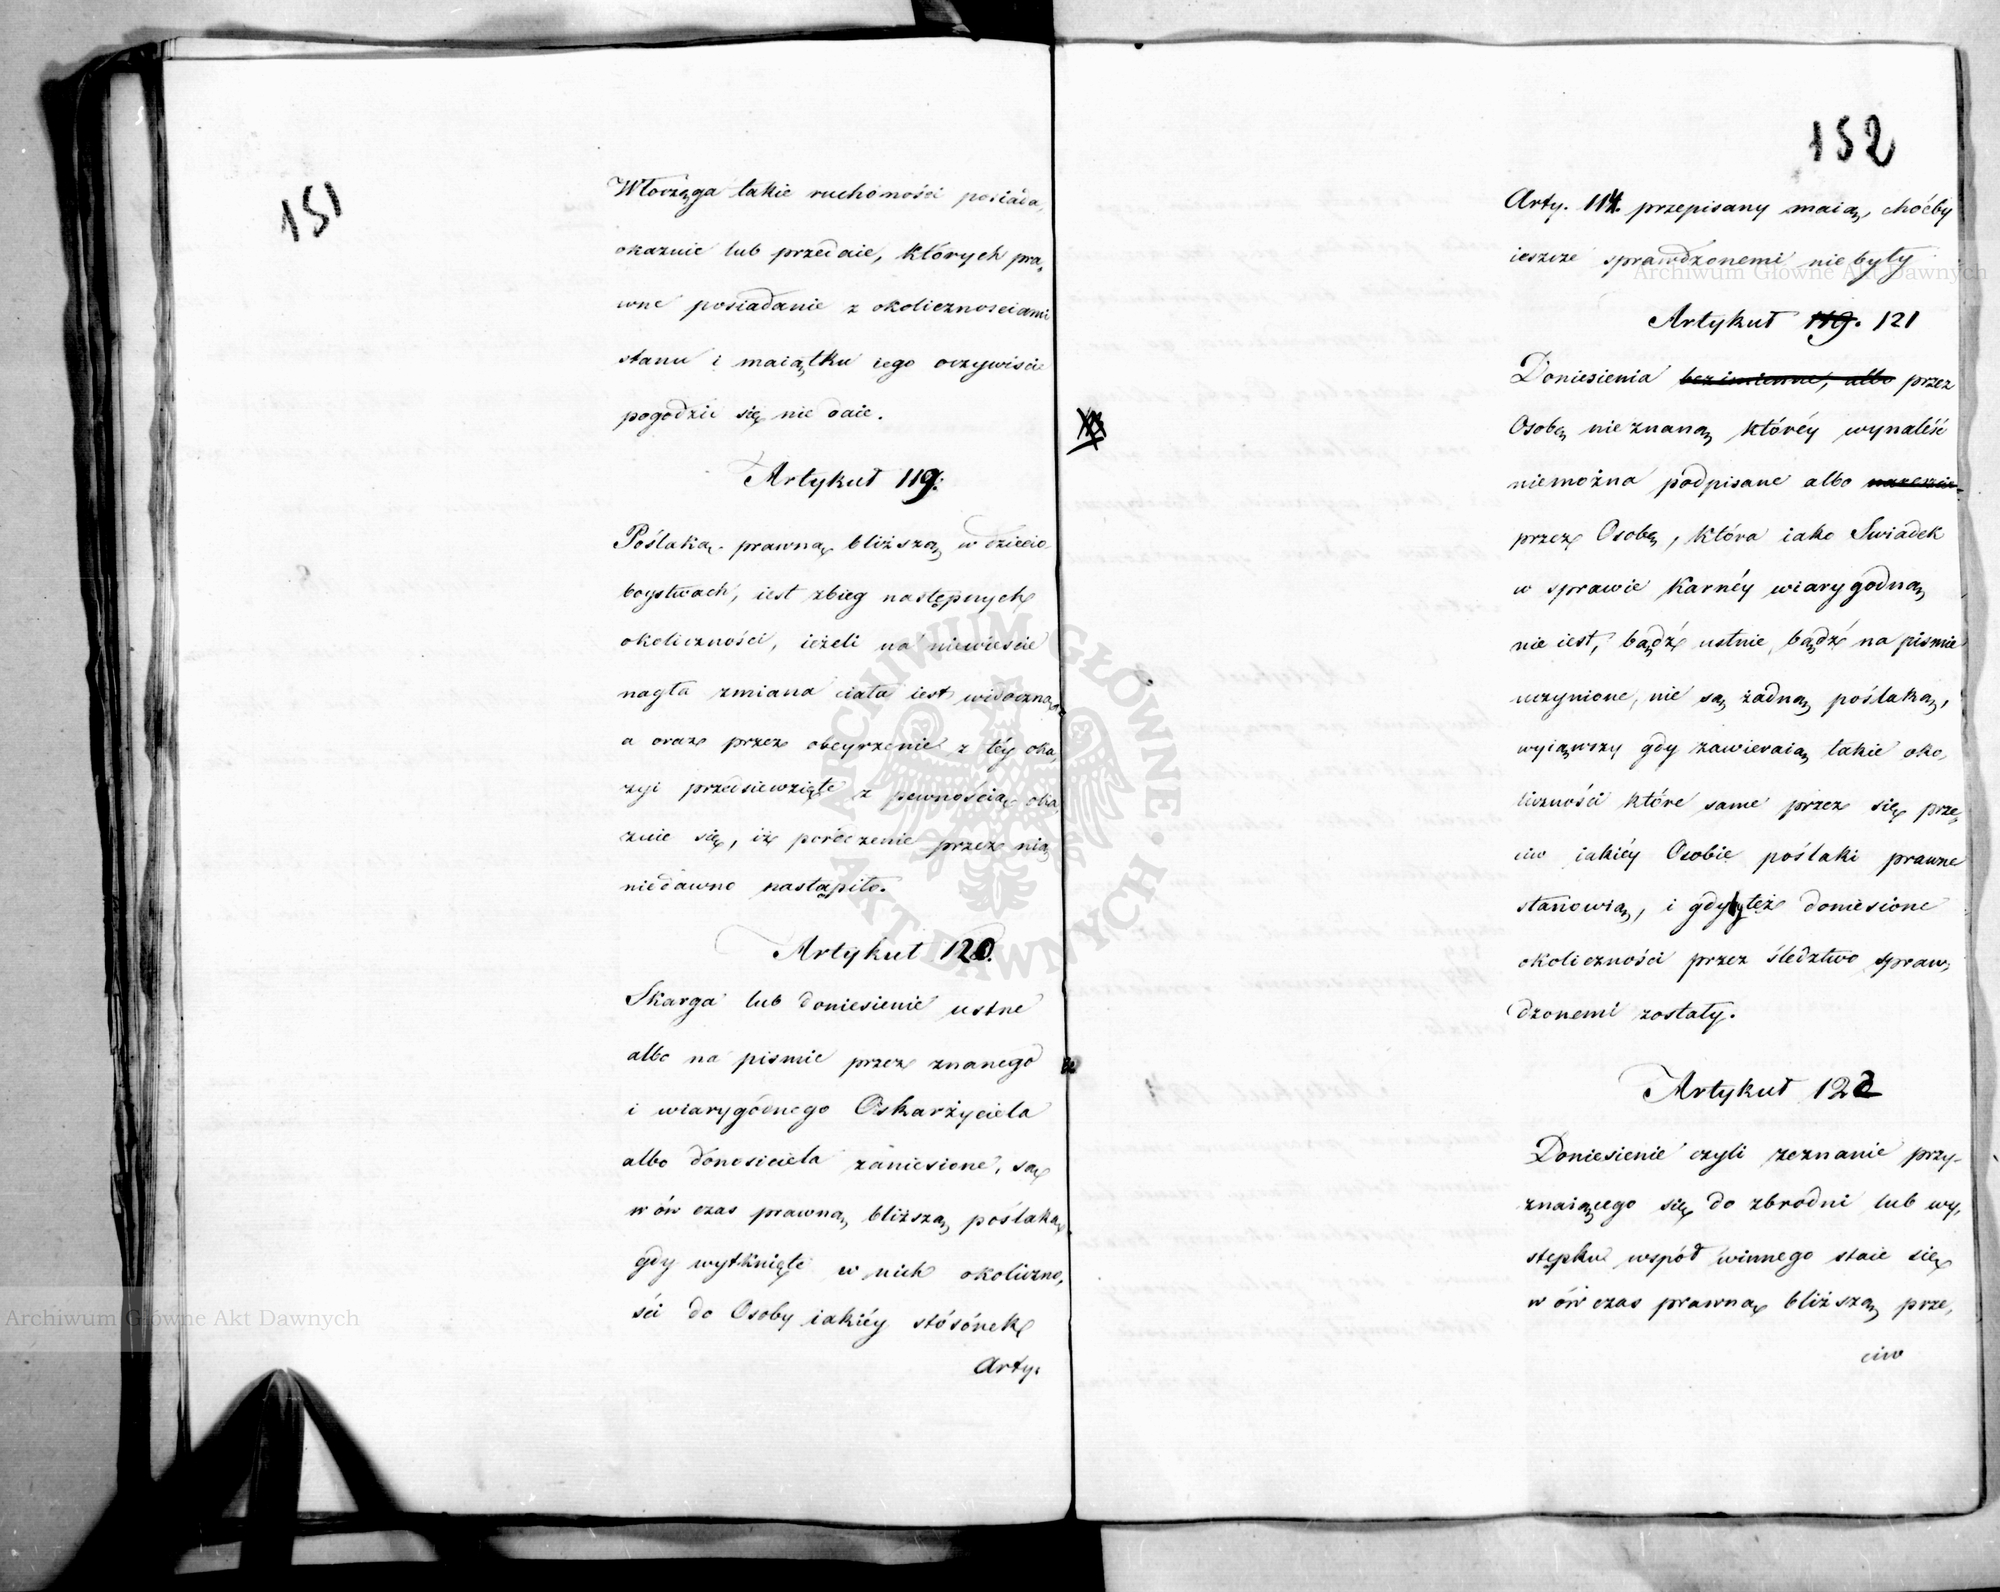 151
Włocząga takie ruchomości posiada,
okazuie lub przedaie, których pra,
wne posiadanie z okolicznosciami
stanu i maiątku iego oczywiście
pogodzić się nie daie.
Artykuł 119.
Poślaką prawną bliższą w dziecio
boystwach, iest zbieg następnych
okoliczności, ieżeli na niewieście
nagła zmiana ciała iest widoczną
a oraz przez obeyrzenie z téy oka,
zyi przedsiewzięte z pewnością oka
zuie się, iż porodzenie przez nią
niedawno nastąpiło.
Artykuł 120.
Skarga lub doniesienie ustne
albo na pismie przez znanego
i wiarygodnego Oskarżyciela
albo donosiciela zaniesione, są
wów czas prawną bliższą poślaką,
gdy wytknięte w nich okoliczno,
ści do Osoby iakiéy stósónek
Arty.
152
Arty. 114. przepisany maią, choćby
ieszcze sprawdzonemi nie były
Artykuł 119. 121
Doniesienia bezimienne, albo przez
Osobę nieznaną któréy wynaleść
niemożna podpisane albo
przez Osobę, która iako Swiadek
w sprawie Karnéy wiarygodną
nie iest, bądź ustnie, bądź na pismie
uczynione, nie są żadną poślaką,
wyiąwszy gdy zawieraią takie oko,
liczności które same przez się prze,
ciw iakiéy Osobie poślaki prawne
stanowią, i gdy też doniesione
okoliczności przez śledztwo spraw,
dzonemi zostały.
Artykuł 122
Doniesienie czyli zeznanie przy-
znaiącego się do zbrodni lub wy,
stępku współ winnego staie się
w ów czas prawną bliższą prze,
ciw
Archiwum Główne Akt Dawnych
Archiwum Główne Akt Dawnych
ARCHIWUM GŁÓWNE AKT DAWNYCH